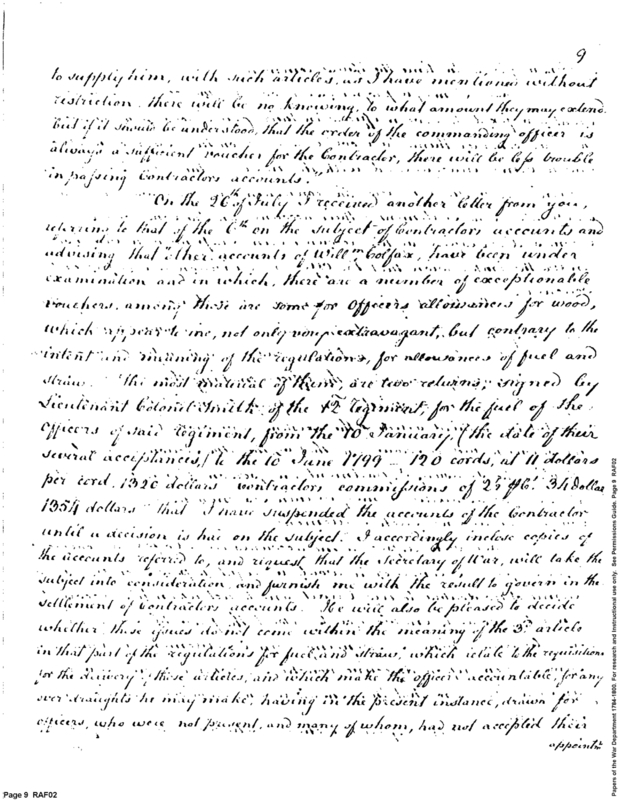 9
to supply him, with such articles, as I have mentioned without
restriction, there will be no knowing, to what amount they may extend.
But if it should be understood, that the order of the commanding officer is
always a sufficient voucher for the Contractor, there will be less trouble
in passing Contractors accounts."
"On the 26th of July I received another letter from you,
referring to that of the 6th on the subject of Contractors accounts and
advising that "other accounts of Willm Colfax, have been under
examination and in which, there are a number of exceptionable
vouchers, among these are some for Officers allowances for wood,
which appear to me, not only very extravagant, but contrary to the
intent and meaning of the regulations, for allowances of fuel and
straw. The most material of them, are two returns, signed by
Lieutenant Colonel Smith of the 12th regiment, for the fuel of the
Officers of said regiment, from the 10th January, (the date of their
several acceptances,) to the 10 June 1799 120 cords, at 11 dollars
per cord, 1320 dollars contractors commissions of 34 Dollars
1354 dollars that I have suspended the accounts of the Contractor
until a decision is had on the subject. I accordingly inclose copies of
the accounts referred to, and request that the Secretary of War, will take the
subject into consideration and furnish me with the result to govern in the
settlement of Contractors accounts. He will also be pleased to decide
whether these issues do not come within the meaning of the 3d article
in that part of the regulations for fuel and straw, which relate to the requisitions
for the delivery of these articles, and which make the officer accountable, for any
over draughts he may make, having in the present instance, drawn for
officers, who were not present, and many of whom, had not accepted their
appointts
Page 9 RAF02
Papers of the War Department 1784-1800. For research and instructional use only. See Permissions Guide. Page 9 RAF02